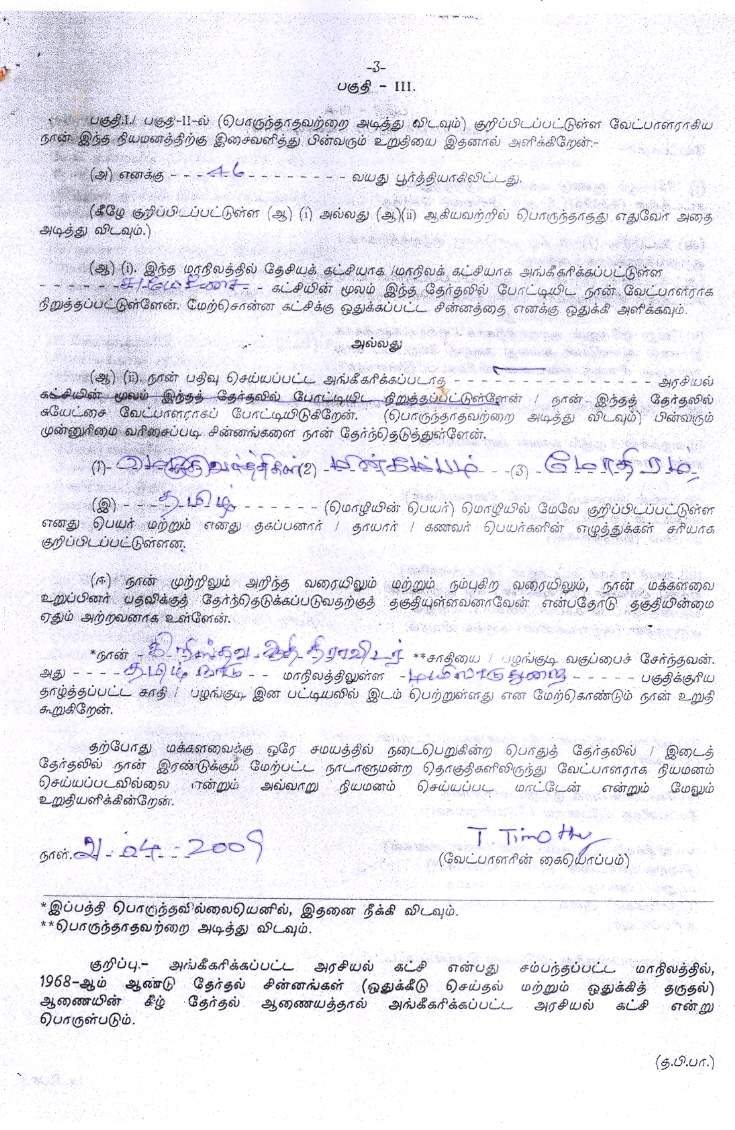 -3-
பகுதி - III.
பகுதி.I./ பகுதி-II-ல் (பொருந்தாதவற்றை அடித்து விடவும்) குறிப்பிடப்பட்டுள்ள வேட்பாளராகிய
நான் இந்த நியமனத்திற்கு இசைவளித்து பின்வரும் உறுதியை இதனால் அளிக்கிறேன்:-
(அ) எனக்கு - - - - 46 - - - - - - - - - வயது பூர்த்தியாகிவிட்டது.
(கீழே குறிப்பிடப்பட்டுள்ள (ஆ) (i) அல்லது (ஆ)(ii) ஆகியவற்றில் பொருந்தாதது எதுவோ அதை
அடித்து விடவும்.)
(ஆ) (i). இந்த மாநிலத்தில் தேசியக் கட்சியாக /மாநிலக் கட்சியாக அங்கீகரிக்கப்பட்டுள்ள
- - - - - - - - கட்சியின் மூலம் இந்த தேர்தலில் போட்டியிட நான் வேட்பாளராக
நிறுத்தப்பட்டுள்ளேன். மேற்சொன்ன கட்சிக்கு ஒதுக்கப்பட்ட சின்னத்தை எனக்கு ஒதுக்கி அளிக்கவும்.
அல்லது
(ஆ) (ii). நான் பதிவு செய்யப்பட்ட அங்கீகரிக்கப்படாத - - - - - - - - - - - - - - - அரசியல்
கட்சியின் மூலம் இந்தத் தேர்தலில் போட்டியிட நிறுத்தப்பட்டுள்ளேன் / நான் இந்தத் தேர்தலில்
சுயேட்சை வேட்பாளராகப் போட்டியிடுகிறேன். (பொருந்தாதவற்றை அடித்து விடவும்) பின்வரும்
முன்னுரிமை வரிசைப்படி சின்னங்களை நான் தேர்ந்தெடுத்துள்ளேன்.
(1)- மெழுகுவர்த்திகள்(2) - மின்கம்பம் - - -(3) - மோதிரம்
(இ) - - - - தமிழ் - - - - - - - (மொழியின் பெயர்) மொழியில் மேலே குறிப்பிடப்பட்டுள்ள
எனது பெயர் மற்றும் எனது தகப்பனார் / தாயார் / கணவர் பெயர்களின் எழுத்துக்கள் சரியாக
குறிப்பிடப்பட்டுள்ளன.
(ஈ) நான் முற்றிலும் அறிந்த வரையிலும் மற்றும் நம்புகிற வரையிலும், நான் மக்களவை
உறுப்பினர் பதவிக்குத் தேர்ந்தெடுக்கப்படுவதற்குத் தகுதியுள்ளவனாவேன் என்பதோடு தகுதியின்மை
ஏதும் அற்றவனாக உள்ளேன்.
*நான் - கிறிஸ்தவ ஆதி திராவிடர் **சாதியை / பழங்குடி வகுப்பைச் சேர்ந்தவன்.
அது - - - - தமிழ் நாடு - - மாநிலத்திலுள்ள - மயிலாடுதுறை - - - - - பகுதிக்குரிய
தாழ்த்தப்பட்ட சாதி / பழங்குடி இன பட்டியலில் இடம் பெற்றுள்ளது என மேற்கொண்டும் நான் உறுதி
கூறுகிறேன்.
தற்போது மக்களவைக்கு ஒரே சமயத்தில் நடைபெறுகின்ற பொதுத் தேர்தலில் / இடைத்
தேர்தலில் நான் இரண்டுக்கும் மேற்பட்ட நாடாளுமன்ற தொகுதிகளிலிருந்து வேட்பாளராக நியமனம்
செய்யப்படவில்லை என்றும் அவ்வாறு நியமனம் செய்யப்பட மாட்டேன் என்றும் மேலும்
உறுதியளிக்கின்றேன்.
T. Timothy
நாள். - 04 - 2009
(வேட்பாளரின் கையொப்பம்)
*இப்பத்தி பொருந்தவில்லையெனில், இதனை நீக்கி விடவும்.
**பொருந்தாதவற்றை அடித்து விடவும்.
குறிப்பு.- அங்கீகரிக்கப்பட்ட அரசியல் கட்சி என்பது சம்பந்தப்பட்ட மாநிலத்தில்,
1968-ஆம் ஆண்டு தேர்தல் சின்னங்கள் (ஒதுக்கீடு செய்தல் மற்றும் ஒதுக்கித் தருதல்)
ஆணையின் கீழ் தேர்தல் ஆணையத்தால் அங்கீகரிக்கப்பட்ட அரசியல் கட்சி என்று
பொருள்படும்.
(த.பி.பா.)